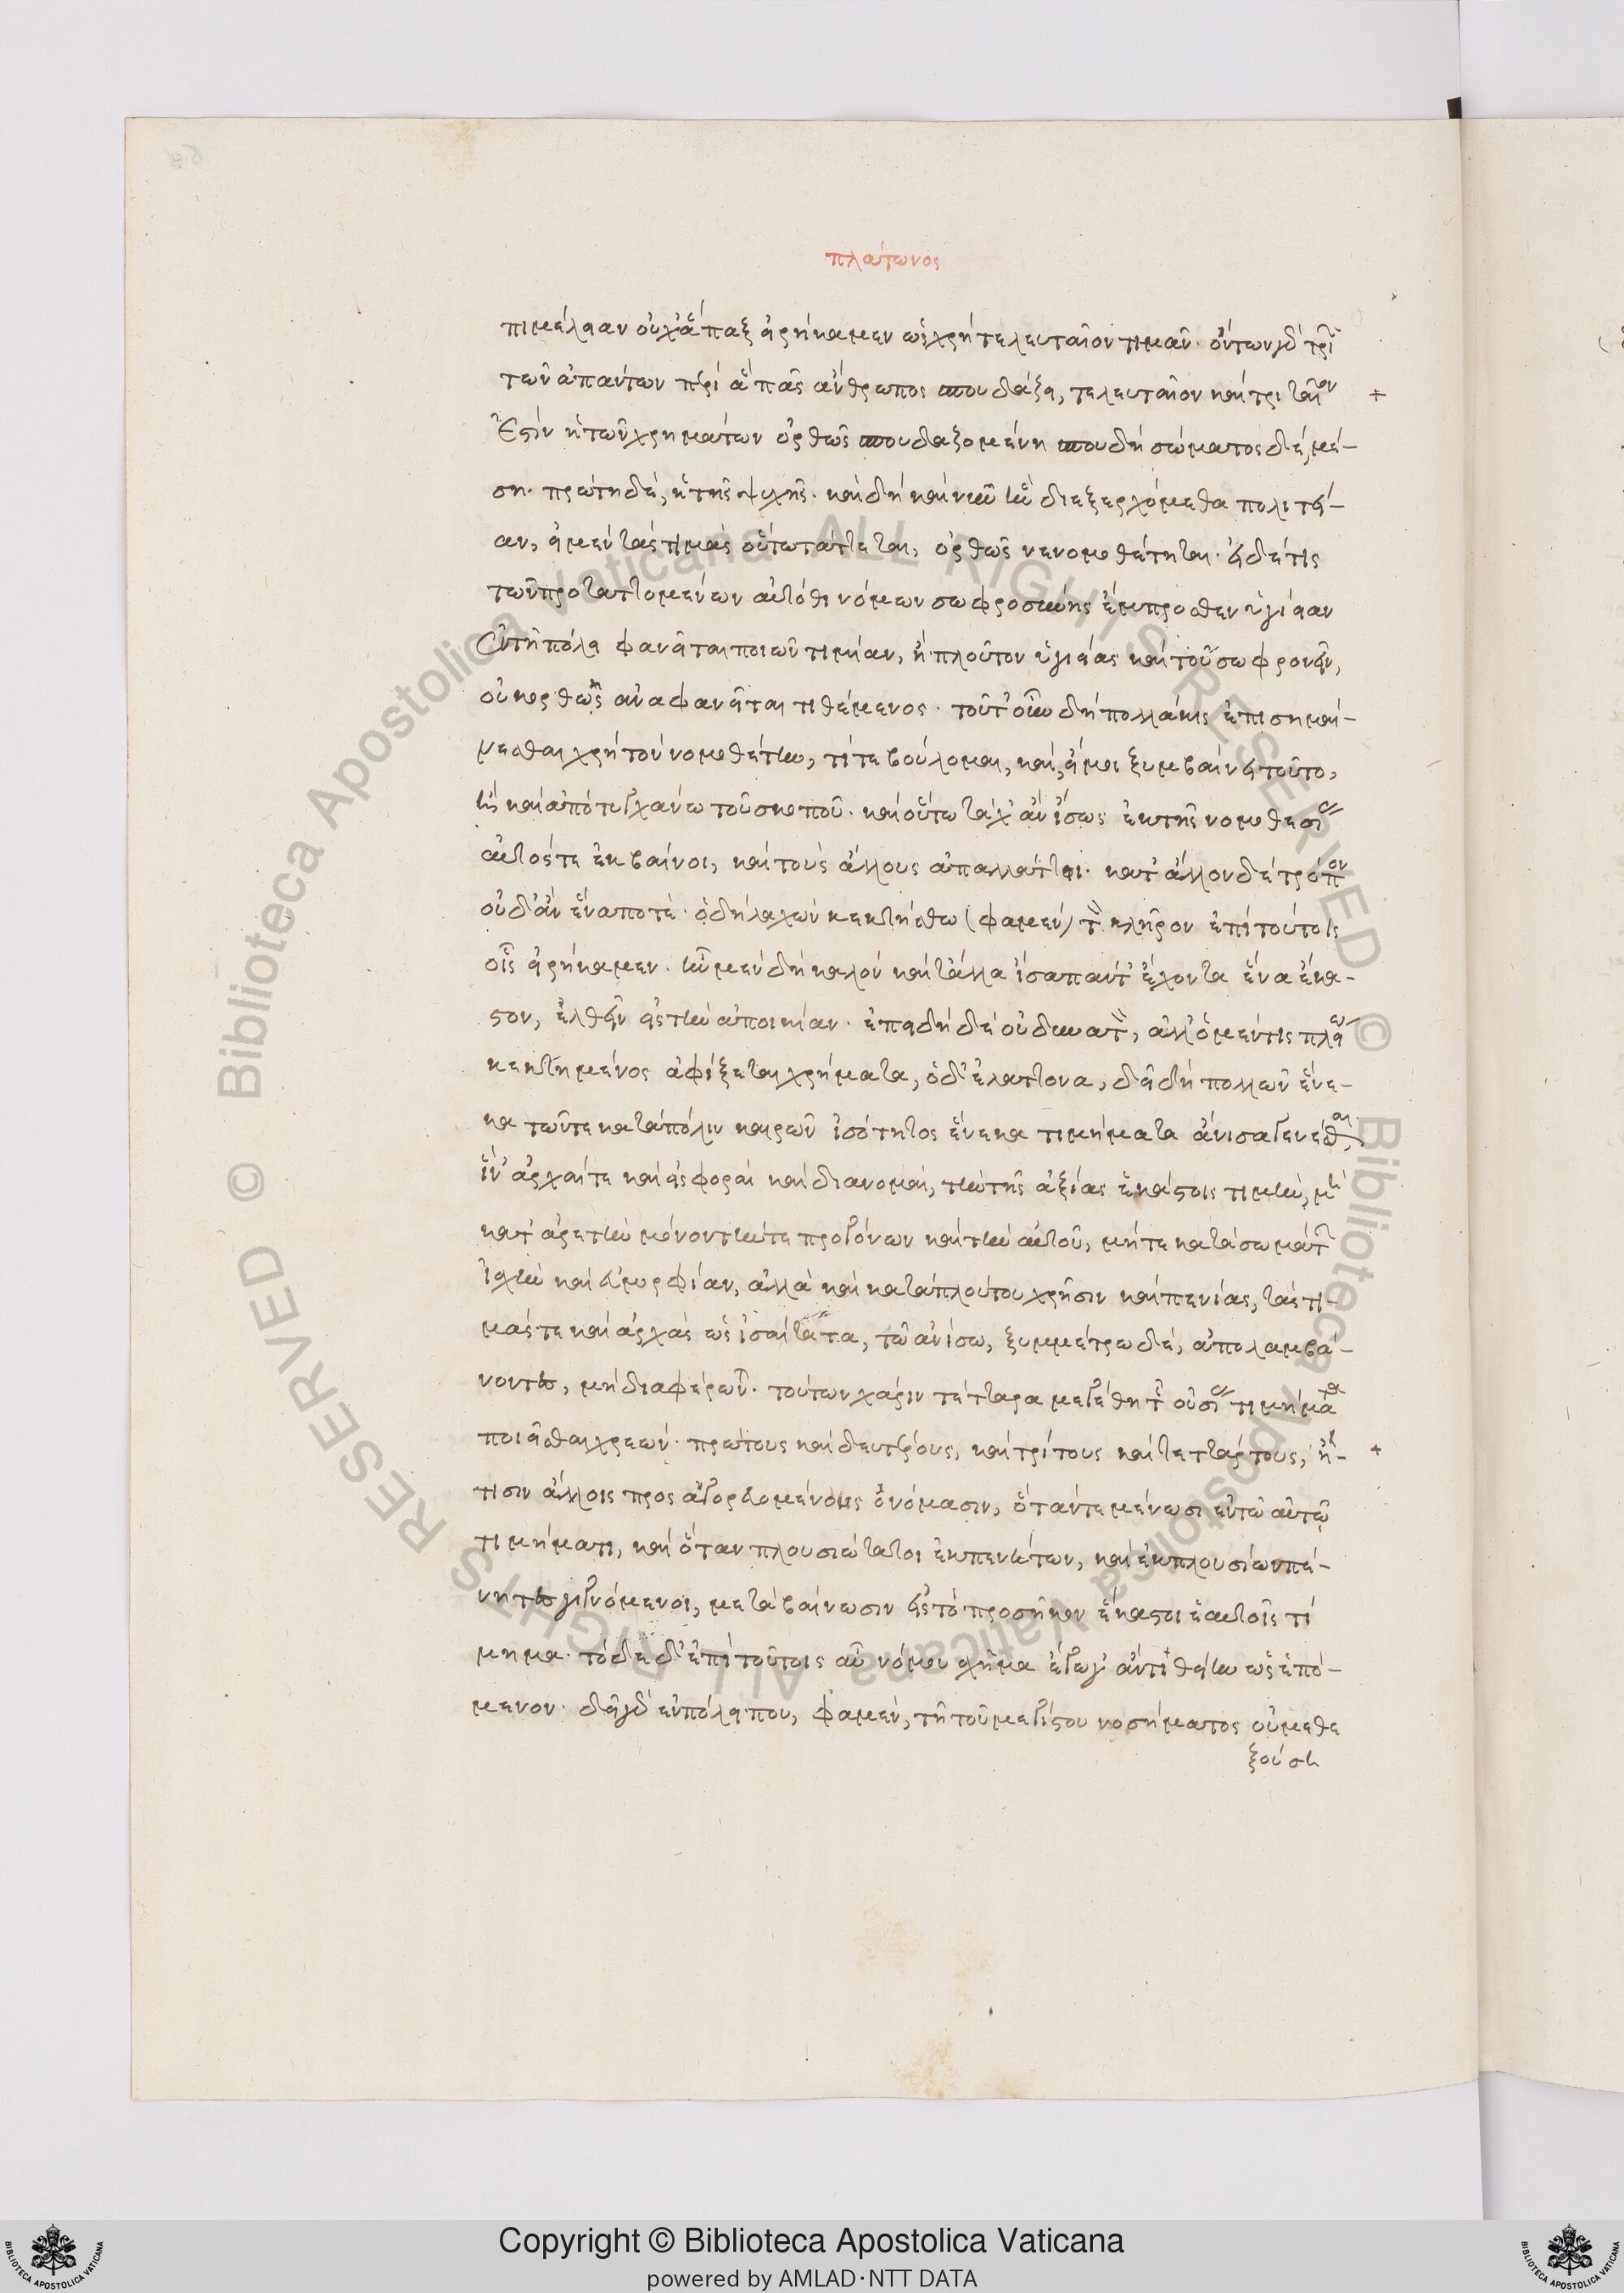 πλάτωνος
πιμέλειαν οὐχ ἅπαξ εἰρήκαμεν ὡς χρὴ τελευταῖον τιμᾶν· ὄντων γὰρ τριῶν
τῶν ἁπάντων περὶ ἃ πᾶς ἄνθρωπος σπουδάζει, τελευταῖον καὶ τρίτον
ἐστὶν ἡ τῶν χρημάτων ὀρθῶς σπουδαζομένη σπουδή· σώματος δὲ, μέ-
ση· πρώτη δὲ, ἡ τῆς ψυχῆς· καὶ δὴ καὶ νῦν ἣν διεξερχόμεθα πολιτεί-
αν, εἰ μὲν τὰς τιμὰς οὕτω τάττεται, ὀρθῶς νενομοθέτηται· εἰ δέ τις
τῶν προταττομένων αὐτόθι νόμων σωφροσύνης ἔμπροσθεν ὑγίειαν
ἐν τῇ πόλει φανεῖται ποιῶν τιμίαν, ἢ πλοῦτον ὑγιείας καὶ τοῦ σωφρονεῖν,
οὐκ ὀρθῶς ἀναφανεῖται τιθέμενος· τοῦτ' οὖν δὴ πολλάκις ἐπισημαί-
νεσθαι χρὴ τὸν νομοθέτην, τί τε βούλομαι, καὶ, εἴ μοι ξυμβαίνει τοῦτο,
ἢ καὶ ἀποτυγχάνω τοῦ σκοποῦ· καὶ οὕτω τάχ' ἂν ἴσως ἐκ τῆς νομοθεσίας
αὐτός τε ἐκβαίνοι, καὶ τοὺς ἄλλους ἀπαλλάττοι· κατ' ἄλλον δὲ τρόπον
οὐδ' ἂν ἕνα ποτέ· ὁ δὴ λαχὼν κεκτήσθω (φαμὲν) τὸν κλῆρον ἐπὶ τούτοις
οἷς εἰρήκαμεν· ἦν μὲν δὴ καλὸν καὶ τἄλλα ἴσα πάντ' ἔχοντα ἕνα ἕκα-
στον, ἐλθεῖν εἰς τὴν ἀποικίαν· ἐπειδὴ δὲ οὐ δυνατὸν, ἀλλ' ὁ μέν τις πλείω
κεκτημένος ἀφίξεται χρήματα, ὁ δ' ἐλάττονα, δεῖ δὴ πολλῶν ἕνε-
κα τῶν τε κατὰ πόλιν καιρῶν ἰσότητος ἕνεκα τιμήματα ἄνισα γενέσθαι,
ἵν' ἀρχαί τε καὶ εἰσφοραὶ καὶ διανομαὶ, τὴν τῆς ἀξίας ἑκάστοις τιμὴν, μὴ
κατ' ἀρετὴν μόνον τήν τε προγόνων καὶ τὴν αὐτοῦ, μήτε κατὰ σωμάτων
ἰσχὺν καὶ εὐμορφίαν, ἀλλὰ καὶ κατὰ πλούτου χρῆσιν καὶ πενίας, τὰς τι-
μάς τε καὶ ἀρχὰς ὡς ἰσαίτατα, τῷ ἀνίσῳ, ξυμμέτρῳ δὲ, ἀπολαμβά-
νοντες, μὴ διαφέρωνται· τούτων χάριν τέτταρα μεγέθη τῆς οὐσίας τιμήματα
ποιεῖσθαι χρεών· πρώτους καὶ δευτέρους, καὶ τρίτους καὶ τετάρτους, ἤ-
τισιν ἄλλοις προσαγορευομένους ὀνόμασιν, ὅταν τε μένωσι ἐν τῷ αὐτῷ
τιμήματι, καὶ ὅταν πλουσιώτατοι ἐκ πενήτων, καὶ ἐκ πλουσίων πέ-
νητες γιγνόμενοι, μεταβαίνωσιν εἰς τὸ προσῆκον ἕκαστοι ἑαυτοῖς τί
μημα· τόδε δ' ἐπὶ τούτοις αὖ νόμου σχῆμα ἔγωγ' ἂν τιθείην ὡς ἑπό-
μενον· δεῖ γὰρ ἐν πόλει που, φαμὲν, τῇ τοῦ μεγίστου νοσήματος οὐ μεθε
ξούσῃ